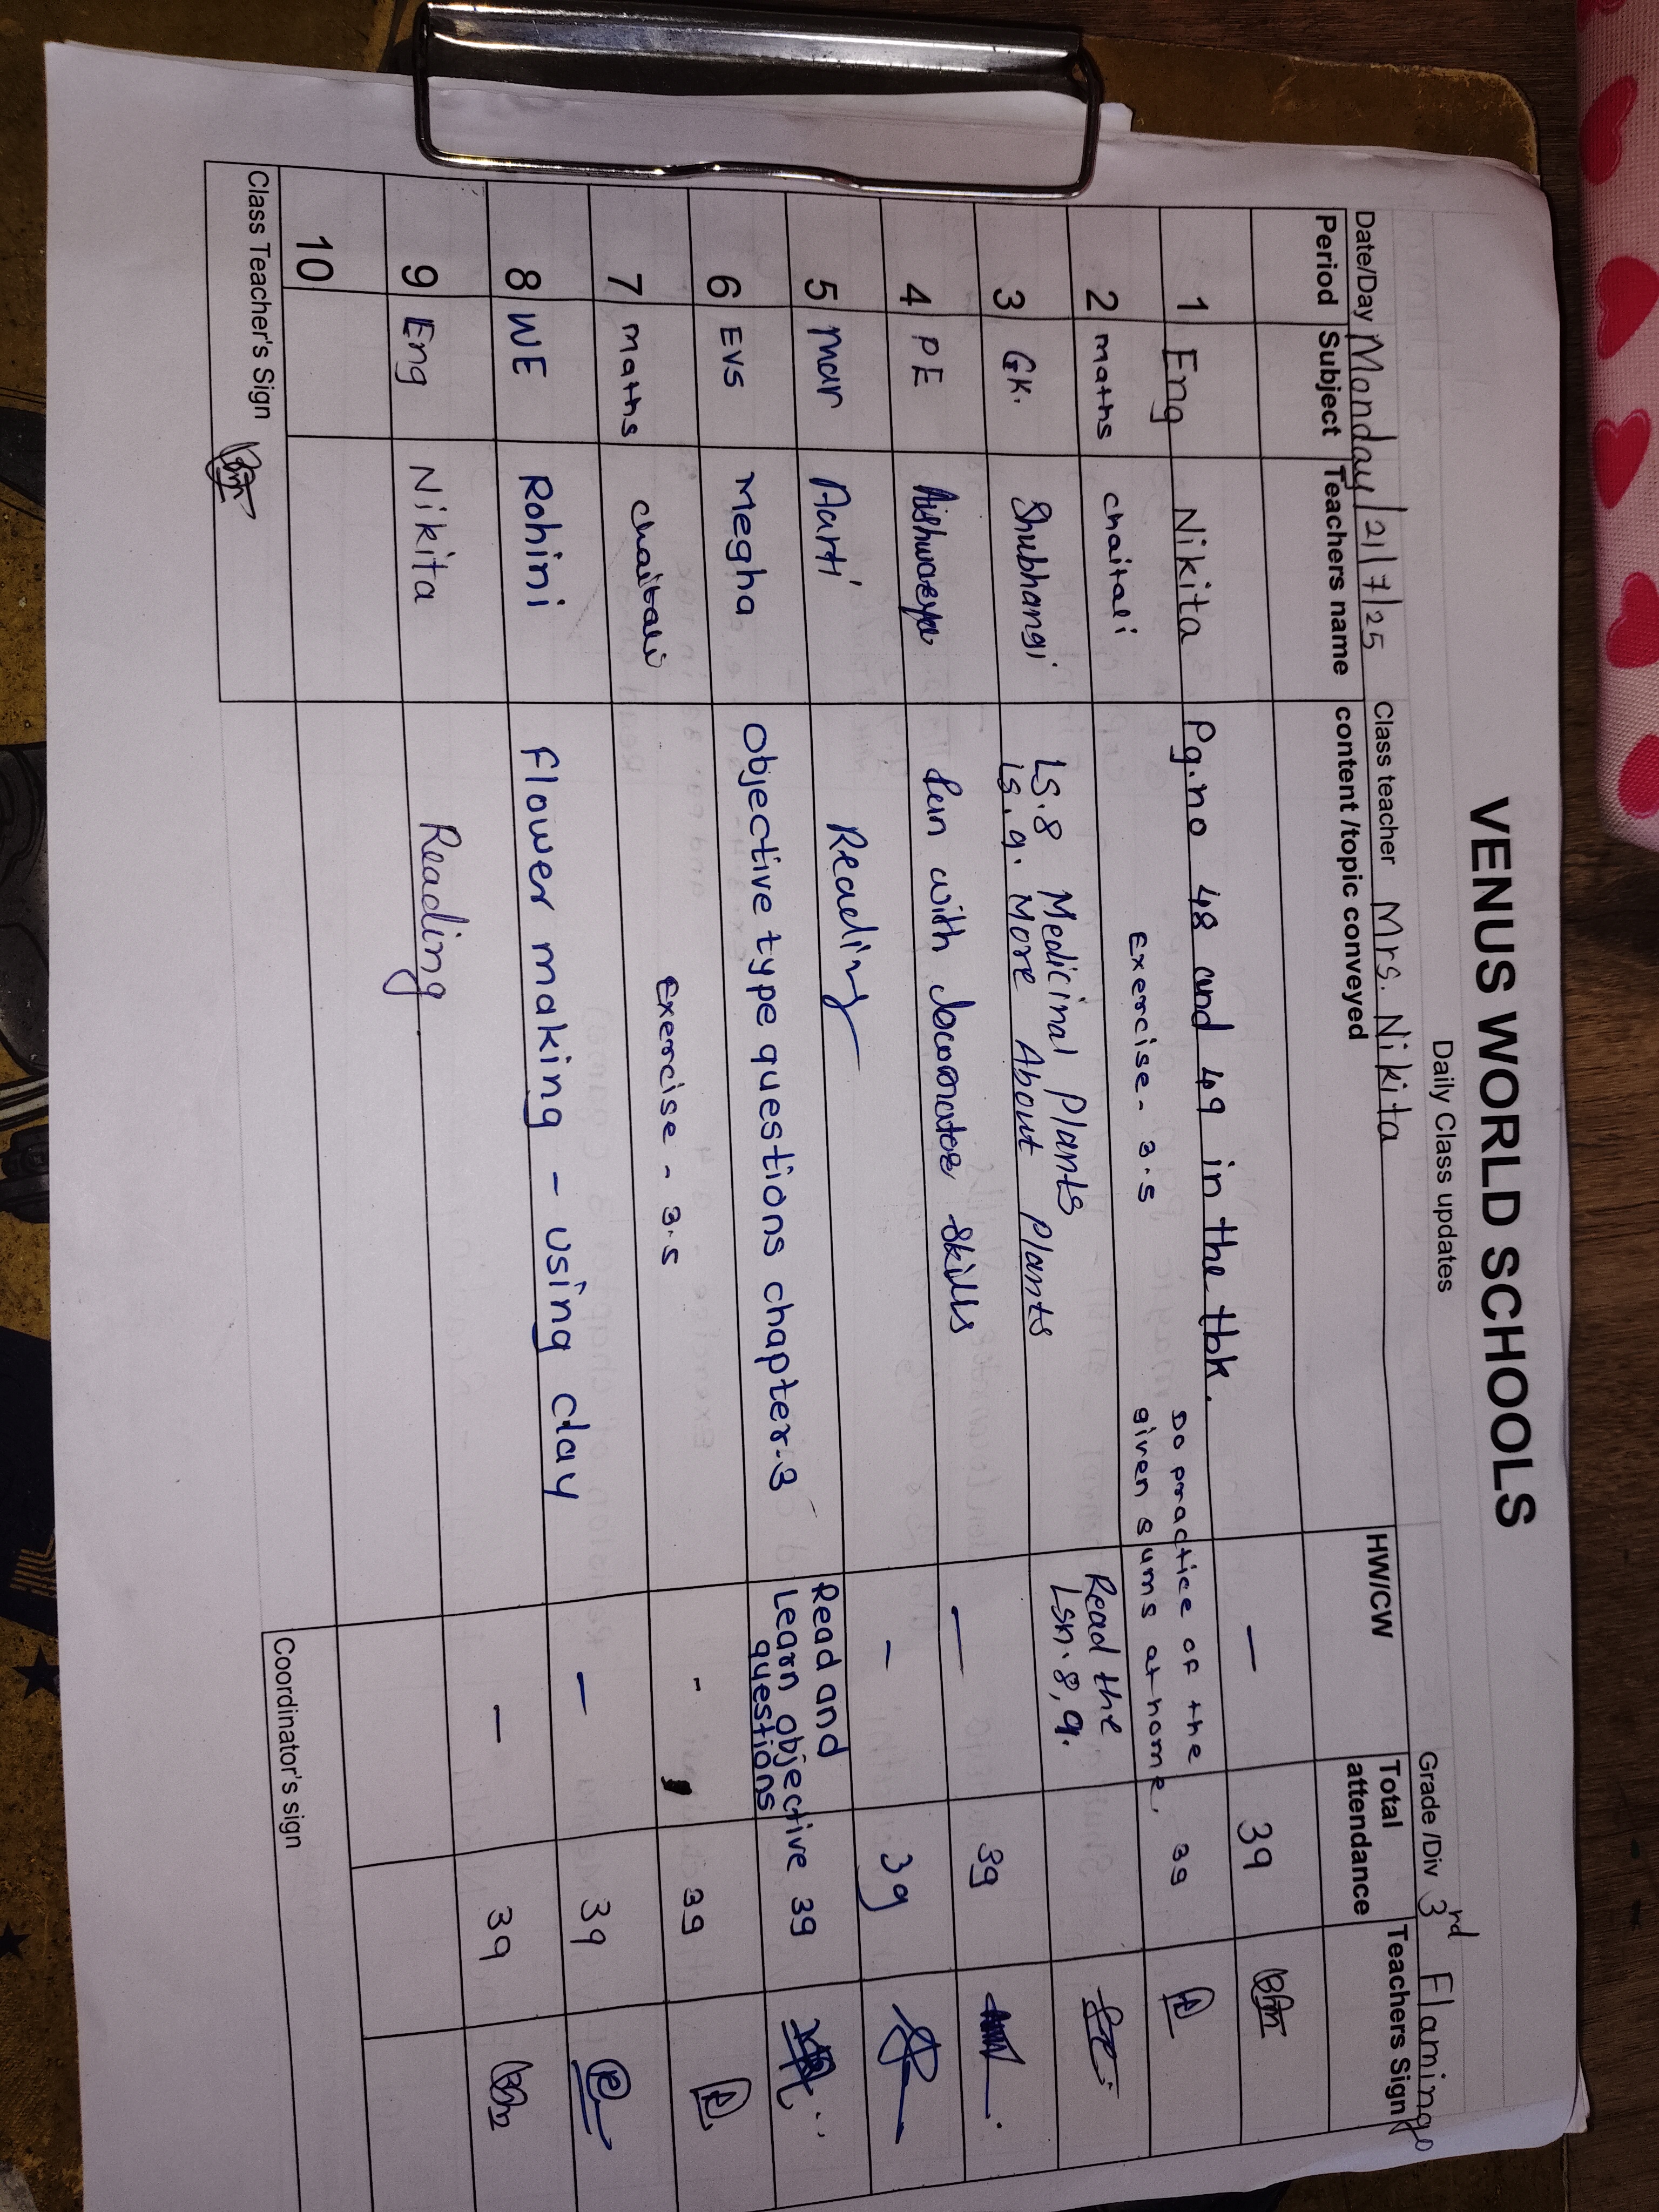 VENUS WORLD SCHOOLS
Daily Class updates
Date/Day Monday/21/7/25 Class teacher Mrs. Nikita Grade /Div 3rd Flamingo
Period Subject Teachers name content /topic conveyed HW/CW Total attendance Teachers Sign
1 Eng Nikita Pg.no 48 and 49 in the tbk. — 39
2 maths chaitali Exercise - 3.5 Do practice of the given sums at home. 39
3 GK. Shubhangi Ls.8 Medicinal Plants Read the
Ls.9. More About Plants Lsn. 8, 9.
4 PE Aishwarya fun with locomotor skills — 39
5 Mar Aarti Reading - 39
6 EVS Megha Objective type questions chapter-3 Read and Learn objective questions 39
7 maths chaitali Exercise - 3.5 - 39
8 WE Rohini Flower making - using clay - 39
9 Eng Nikita Reading - 39
10
Class Teacher's Sign Coordinator's sign